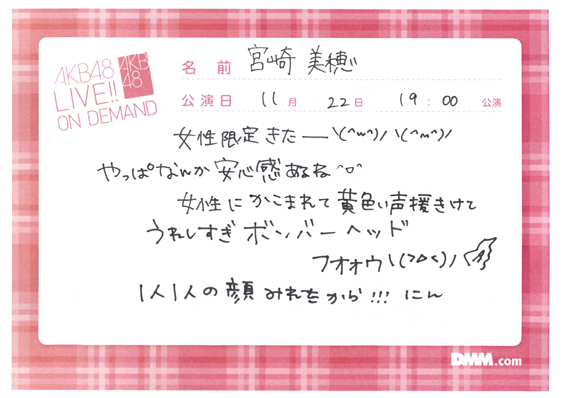 AKB48
LIVE!!
ON DEMAND
AKB
48
名前 宮崎 美穂
公演日 11月 22日 19:00 公演
女性限定きたー \(^w^)/ \(^m^)/
やっぱなんか安心感あるね ^o^
女性にかこまれて黄色い声援きけて
うれしすぎボンバーヘッド
フオォウ \(>△<)/
1人1人の顔みれたから!!! にん
DMM.com